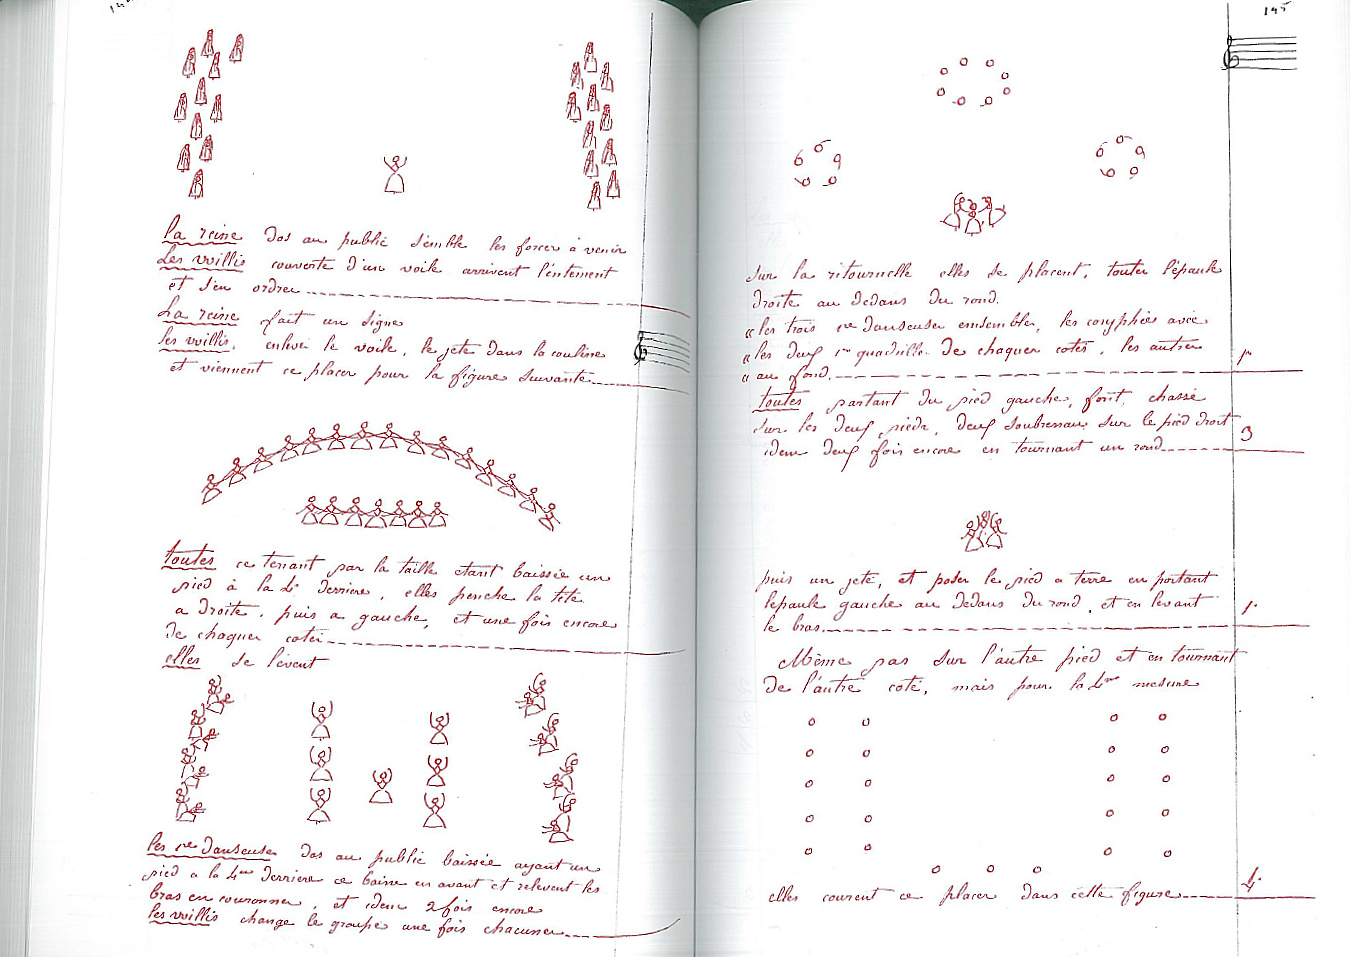 144
la reine dos au public semble les forcer à venir
Les willis couverte d'un voile arrivent lentement
et s'en ordree
La reine fait un signe
les willis, enleve le voile, le jete dans la coulisse
et viennent ce placer pour la figure suivante
toutes ce tenant par la taille etant baissée un
pied à la 4e derriere, elles penche la tête
a droite, puis a gauche, et une fois encore
de chaquer coteé
elles se lévent
les 1re danseuse dos au public baissée ayant un
pied a la 4me derriere ce baisse en avant et relevent les
bras en couronner, et idem 2 fois encore
les willis change le groupe une fois chacuner
145
Sur la ritournelle elles se placent, touter l'épaule
droite au dedans du rond.
« les trois 1re danseuser ensembler, les coryphées avec
« les deux 1er quadrille de chaquer cotés, les autrer
« au fond. 1r
toutes partant du pied gauche, font chassé
sur les deux pieds, deux soubresaux sur le pied droit
idem deux fois encore en tournant un rond 3
puis un jeté, et poser le pied a terre en portant
lepaule gauche au dedans du rond, et en levant
le bras. 1.
Même pas sur l'autre pied et en tournant
de l'autre coté, mais pour la 4me mesure
elles courent ce placer dans cette figure 4.